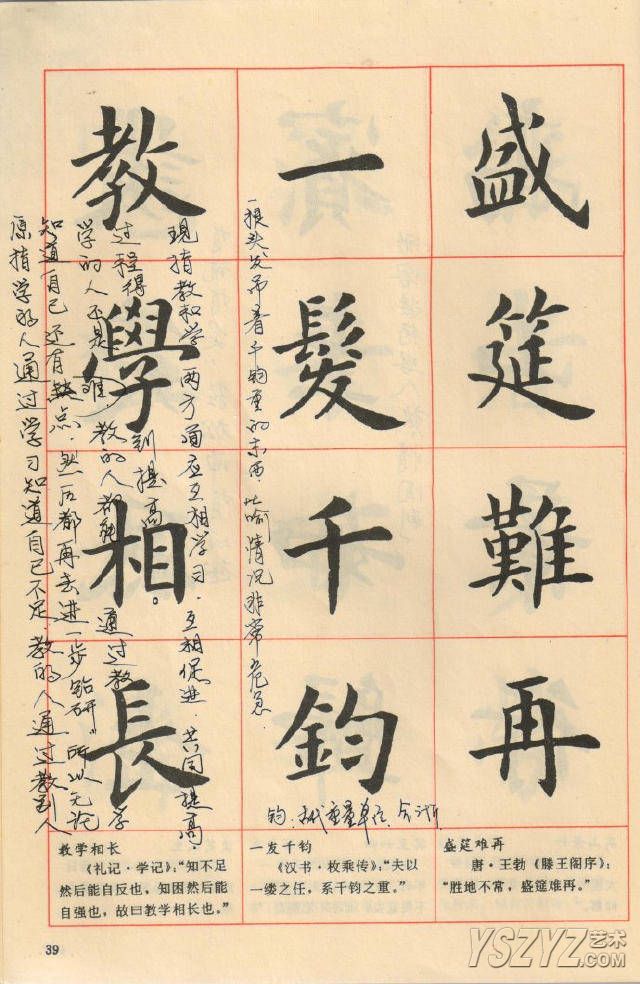 盛筵難再
一髮千鈞
教學相長
一根头发吊着千钧重的东西,比喻情况非常危急.
钧:古代重量单位,
原指学的人通过学习知道自己不足.教的人通过教别人
知道自己还有缺点.然后都再去进一步"钻研"所以无论
学的人还是教的人都能通过教学
过程得到提高。
现指教和学两方面应互相学习.互相促进.共同提高.
教学相长
《礼记·学记》:“知不足
然后能自反也,知困然后能
自强也,故曰教学相长也。”
一发千钧
《汉书·枚乘传》:“夫以
一缕之任,系千钧之重。”
盛筵难再
唐·王勃《滕王阁序》:
“胜地不常,盛筵难再。”
39
YSZYZ艺术
.COM